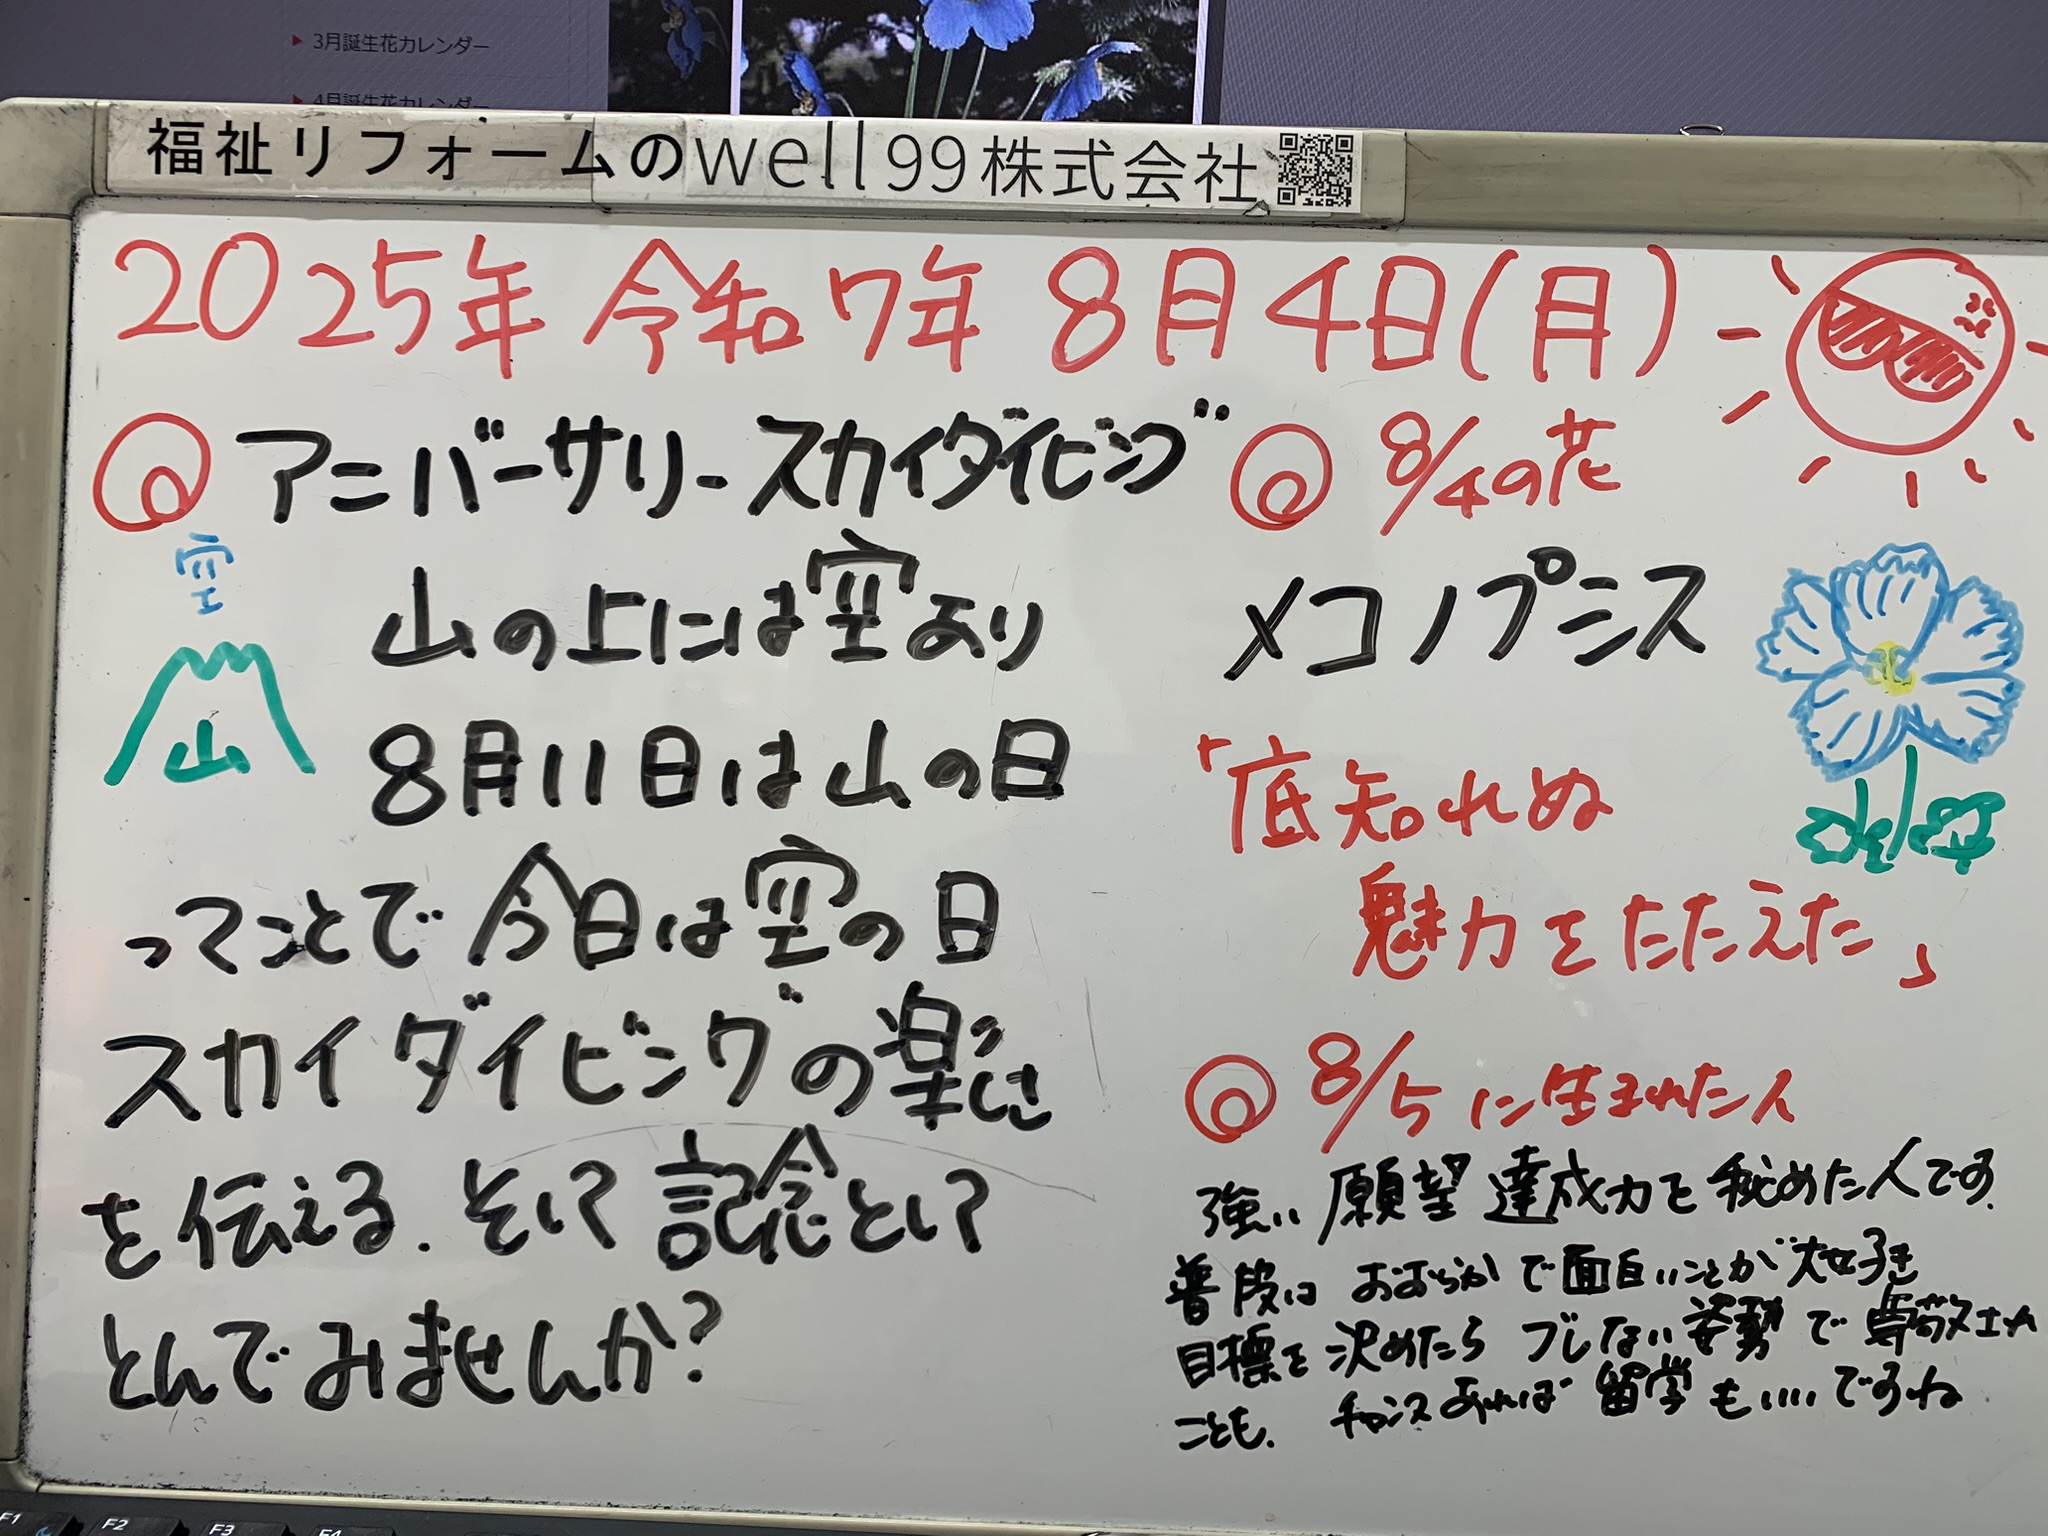 3月誕生花カレンダー
4月誕生花カレンダー
福祉リフォームのwell99株式会社
2025年 令和7年 8月4日(月)
アニバーサリースカイダイビング
空
山
山の上には空あり
8月11日は山の日
ってことで今日は空の日
スカイダイビングの楽しさ
を伝える.そして記念として
とんでみませんか?
8/4の花
メコノプシス
「底知れぬ
魅力をたたえた」
8/5に生まれた人
強い願望達成力を秘めた人です.
普段はおおらかで面白いことが大好き
目標を決めたらブレない姿勢で尊敬され
ことも.チャンスあれば留学もいい..ですね
F1
F2
F3
F4